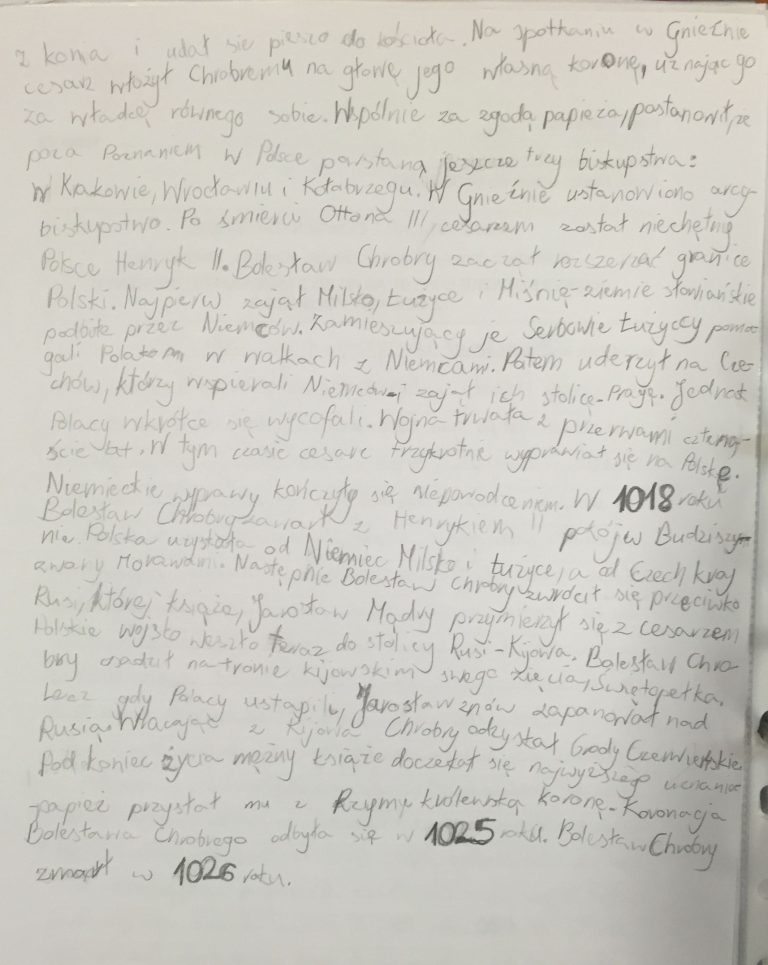 z konia i udał się pieszo do kościoła. Na spotkaniu w Gnieźnie
cesarz włożył Chrobremu na głowę jego własną koronę, uznając go
za władcę równego sobie. Wspólnie za zgodą papieża, postanowił, że
poza Poznaniem w Polsce powstaną jeszcze trzy biskupstwa:
w Krakowie, Wrocławiu i Kołobrzegu. W Gnieźnie ustanowiono arcy-
biskupstwo. Po śmierci Ottona III, cesarzem został niechętny
Polsce Henryk II. Bolesław Chrobry zaczął rozszerzać granice
Polski. Najpierw zajął Milsko, Łużyce i Miśnię-ziemie słowiańskie
podbite przez Niemców. Zamieszkujący je Serbowie Łużyccy poma-
gali Polakom w walkach z Niemcami. Potem uderzył na Cze-
chów, którzy wspierali Niemców i zajął ich stolicę-Pragę. Jednak
Polacy wkrótce się wycofali. Wojna trwała z przerwami czterna-
ście lat. W tym czasie cesarz trzykrotnie wyprawiał się na Polskę.
Niemieckie wyprawy kończyły się niepowodzeniem. W 1018 roku
Bolesław Chrobry zawarł z Henrykiem II pokój w Budziszy-
nie. Polska uzyskała od Niemiec Milsko i Łużyce, a od Czech kraj
zwany Morawami. Następnie Bolesław Chrobry zwrócił się przeciwko
Rusi, której książę, Jarosław Mądry przymierzył się z cesarzem
Polskie wojsko weszło teraz do stolicy Rusi-Kijowa. Bolesław Chro-
bry osadził na tronie kijowskim swego zięcia, Świętopełka.
Lecz gdy Polacy ustąpili, Jarosław znów zapanował nad
Rusią. Wracając z Kijowa Chrobry odzyskał Grody Czerwieńskie
Pod koniec życia mężny książę doczekał się najwyższego uznania
-papież przysłał mu z Rzymu królewską koronę. Koronacja
Bolesława Chrobrego odbyła się w 1025 roku. Bolesław Chrobry
zmarł w 1026 roku.